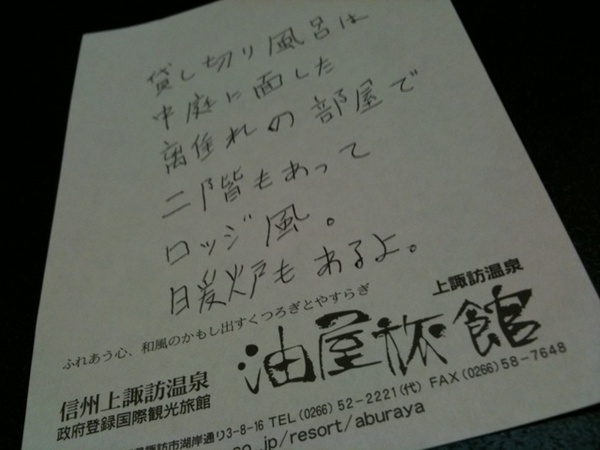 貸し切り風呂は
中庭に面した
離れの部屋で
二階もあって
ロッジ風。
日炭炉もあるよ。
ふれあう心、和風のかもし出すくつろぎとやすらぎ
上諏訪温泉
信州上諏訪温泉
政府登録国際観光旅館
油屋旅館
諏訪市湖岸通り3-8-16 TEL(0266)52-2221(代) FAX(0266)58-7648
.jp/resort/aburaya